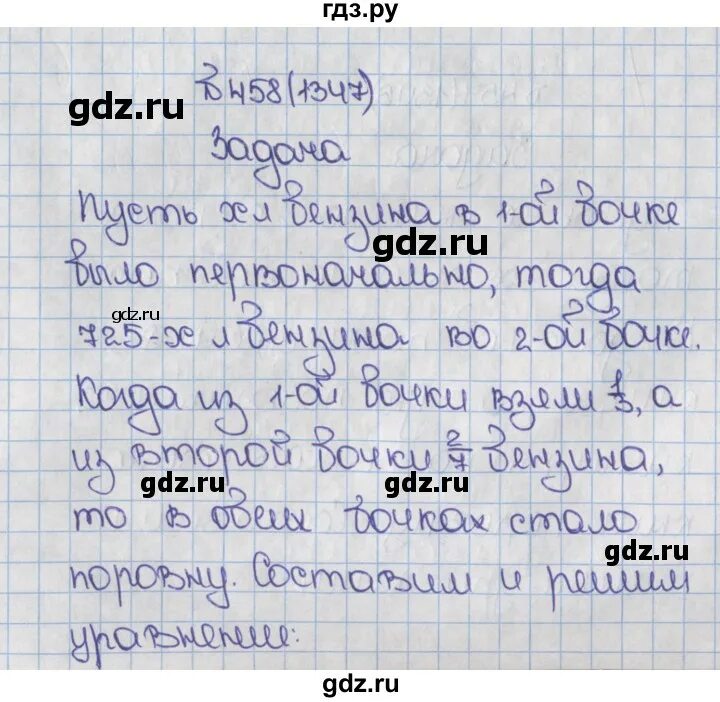 гдз.ру
В 458(1347)
gdz.ru
Задача
Пусть х л бензина в 1-ой бочке
gdz.ru
было первоначально, тогда
gdz.ru
725-х л бензина во 2-ой бочке.
Когда из 1-ой бочки взяли 1/3, а
из второй бочки 2/7 бензина,
gdz.ru gdz.ru
то в обеих бочках стало
gdz.ru
поровну. Составим и решим
уравнение:
gdz.ru